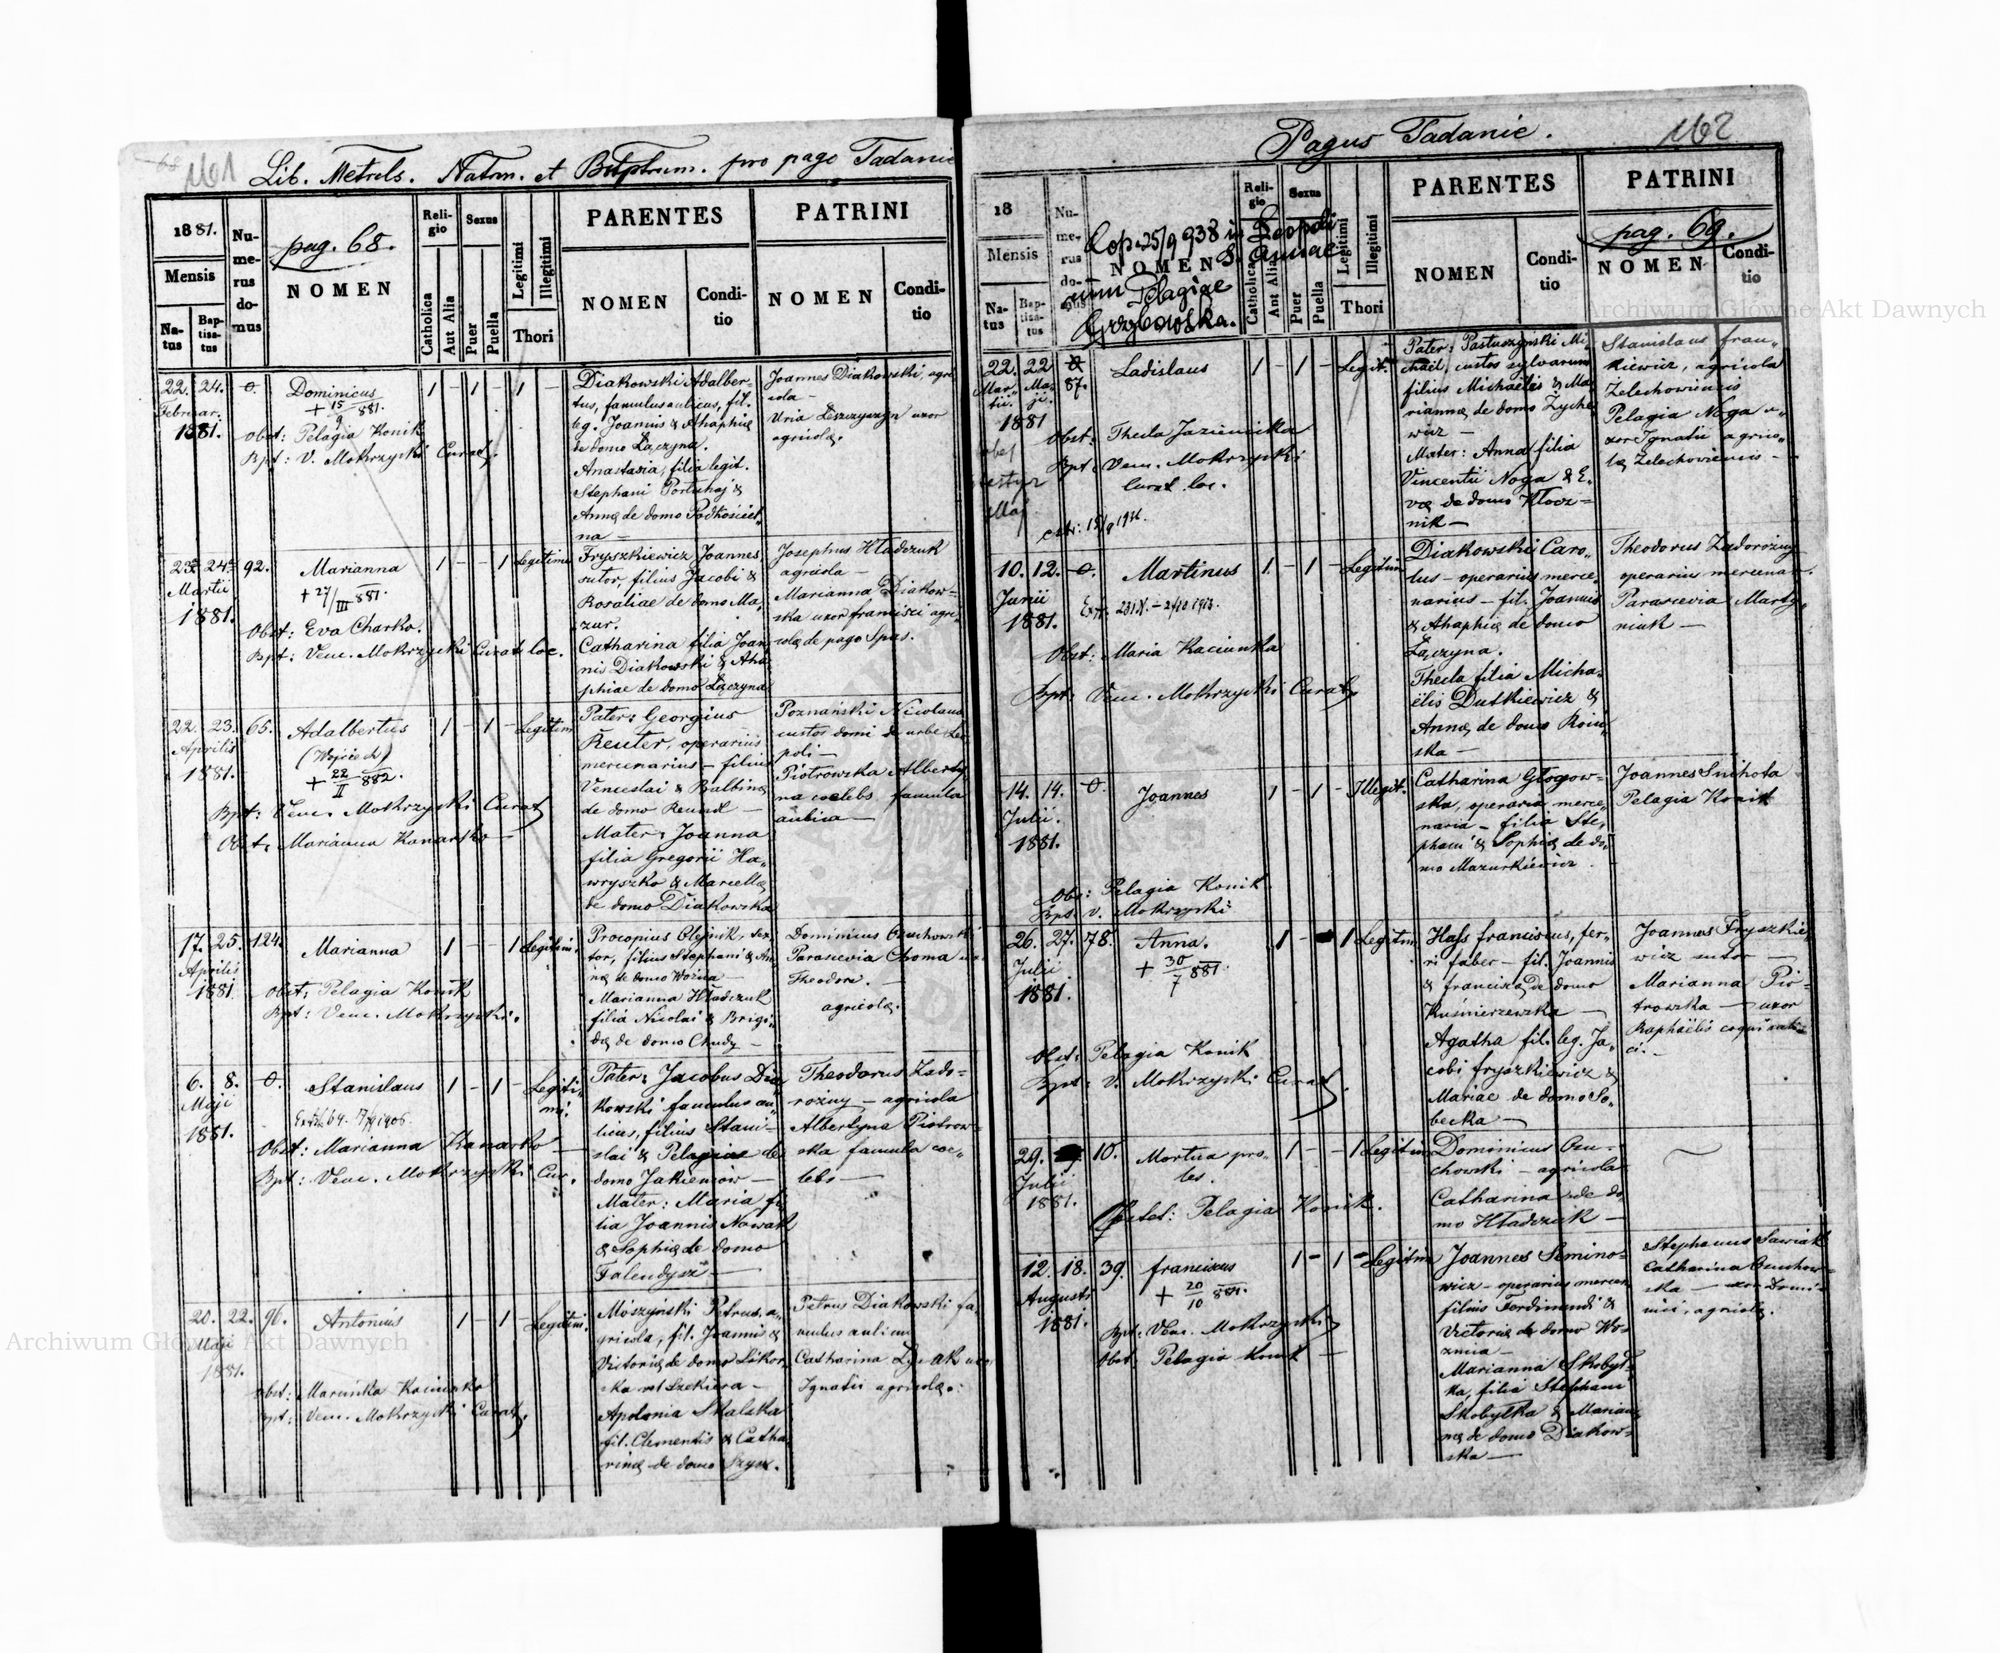 161 Lib. Metrels. Natrm. et Btptrum. pro pago Tadanie
1881.
Mensis
Na-
tus
Bap-
tisa-
tus
Nu-
me-
rus
do-
mus
pag. 68.
NOMEN
Reli-
gio
Catholica
Aut Alia
Sexus
Puer
Puella
Legitimi
Illegitimi
Thori
PARENTES
NOMEN
Condi-
tio
PATRINI
NOMEN
Condi-
tio
22. 24. 0. Dominicus 1 - 1 - 1 -
Februar.
1881.
+ 15/9 881.
Obst: Pelagia Konik
Bpt: V. Mokrzycki Curat.
Diakowski Adalber-
tus, famulus aulicus, fil.
leg. Joannis & Ahaphiæ
de domo Łączyna.
Anastasia, filia legit.
Stephani Portuhaj &
Annæ de domo Podkościel-
na -
Joannes Diakowski, agri-
cola -
Uria Leszczyszyn uxor
agricolæ.
23. 24. 92. Marianna 1 - - 1 Legitimi
Martii
1881.
+ 27/III 881.
Obst: Eva Charko.
Bpt: Ven. Mokrzycki Curat loc.
Fryszkiewicz Joannes,
sutor, filius Jacobi &
Rosaliae de domo Ma-
zur.
Catharina filia Joan-
nis Diakowski & Aha-
phiae de domo Łączyna
Josephus Hładczuk
agricola -
Marianna Diakow-
ska uxor francisci agri-
colæ de pago Spas.
22. 23. 65. Adalbertus 1 - 1 - Legitim
Aprilis
1881.
(Wojciech)
+ 22/II 882.
Bpt: Ven. Mokrzycki Curat
Obst: Marianna Kanarko -
Pater: Georgius
Reuter, operarius
mercenarius - filius
Venceslai & Balbinæ
de domo Reund -
Mater: Joanna
filia Gregorii Ha-
wryszko & Marcellæ
de domo Diakowska
Poznański Nicolaus
custos domi de urbe Leo-
poli -
Piotrowska Alberty-
na coelebs famula
aulica -
17. 25. 124. Marianna 1 - - 1 Legitimi.
Aprilis
1881
Obst: Pelagia Konik
Bpt: Ven. Mokrzycki.
Procopius Olejnik, tex-
tor, filius Stephani & An-
næ de domo Woźna -
Marianna Hładczuk
filia Nicolai & Brigi-
dæ de domo Chudy -
Dominicus Onuchowski
Parascevia Choma
Theodore. -
agricolæ.
6. 8. 0. Stanislaus 1 - 1 - Legiti-
mi.
Maji
1881.
Obst: Marianna Kanarko -
Bpt: Ven. Mokrzycki Cur.
Pater: Jacobus Dia-
kowski famulus au-
licus, filius Stani-
slai & Pelagiae de
domo Jakieniow -
Mater: Maria fi-
lia Joannis Nowak
& Sophiæ de domo
Falendysz -
Theodorus Zado-
rozny - agricola
Albertyna Piotrow-
ska famula coe-
lebs -
20. 22. 96. Antonius 1 - 1 - Legitimi.
Maji
1881.
Obst: Maruńka Kaciunko
Bpt: Ven. Mokrzycki Curat.
Moszyński Petrus, a-
gricola, fil. Joannis &
Victoriæ de domo Sikor-
ska vel Szekiera -
Apolonia Skalska
fil. Clementis & Catha-
rinæ de domo Szysz.
Petrus Diakowski fa-
mulus aulicus
Catharina Lysak uxor
Ignatii agricolæ.
Pagus Tadanie. 162
18
Mensis
Na-
tus
Bap-
tisa-
tus
Nu-
me-
rus
do-
mus
Cop. 25/9 938 in Leopoli
S. Annae
NOMEN
cum Pelagiae
Grzybowska.
Reli-
gio
Catholica
Aut Alia
Sexus
Puer
Puella
Legitimi
Illegitimi
Thori
PARENTES
NOMEN
Condi-
tio
PATRINI
pag. 69.
NOMEN
Condi-
tio
22. 22 87. Ladislaus 1 - 1 - Legit.
Mar-
tii.
Ma-
ji.
1881
Obst: Thecla Jazienicka
Bpt: Ven. Mokrzycki
Curat. loc.
Pater: Pastuszynski Mi-
chaël, custos sylvarum
filius Michaëlis & Ma-
riannæ de domo Zyche-
wicz -
Mater: Anna filia
Vincentii Noga & E-
væ de domo Klocz-
nik -
Stanislaus fran-
kiewicz, agricola
Zelechoviensis
Pelagia Noga u-
xor Ignatii agrico-
læ Zelechoviensis -
10. 12. 0. Martinus 1. - 1 - Legitim
Junii
1881.
Obst: Maria Kaciunka
Bpt: Ven. Mokrzycki Curat.
Diakowski Caro-
lus - operarius merce-
narius - fil. Joannis
& Ahaphiæ de domo
Łączyna.
Thecla filia Micha-
ëlis Dutkiewicz &
Annæ de domo Roiń-
ska -
Theodorus Zadorożny
operarius mercenar.
Parascevia Marty-
niuk -
14. 14. 0. Joannes 1 - 1 - Illegit.
Julii.
1881.
Obs: Pelagia Konik
Bpt. V. Mokrzycki
Catharina Głogow-
ska, operaria merce-
naria - filia Ste-
phani & Sophiæ de do-
mo Mazurkiewicz.
Joannes Snihota
Pelagia Konik
26. 27. 78. Anna. 1 - 1 Legitim
Julii
1881.
+ 30/7 881.
Obst: Pelagia Konik
Bpt: V. Mokrzycki Curat.
Hass franciscus, fer-
ri faber - fil. Joannis
& franciscæ de domo
Kuśnierzewska -
Agatha fil. leg. Ja-
cobi fryszkiewicz &
Mariae de domo So-
becka -
Joannes Fryszkie-
wicz sutor -
Marianna Pio-
trowska - uxor
Raphaëlis coqui auli-
ci. -
29. 10. Mortua pro-
les. 1 - - 1 Legitim
Julii
1881.
Obstet: Pelagia Konik.
Dominicus Onu-
chowski - agricola
Catharina de do-
mo Hładczuk -
12. 18. 39. franciscus 1 - 1 - Legitim
Augusti
1881.
+ 20/10 881.
Bpt: Ven. Mokrzycki
Obst: Pelagia Konik -
Joannes Semino-
wicz - operarius mercen.
filius Ferdinandi &
Victoriæ de domo Wo-
znia -
Marianna Skobył-
ka, filia Stephani
Skobyłka & Marian-
næ de domo Diakow-
ska -
Stephanus Sawiak
Catharina Onuchow-
ska - uxor Domi-
nici, agricolæ.
Archiwum Główne Akt Dawnych
Archiwum Główne Akt Dawnych